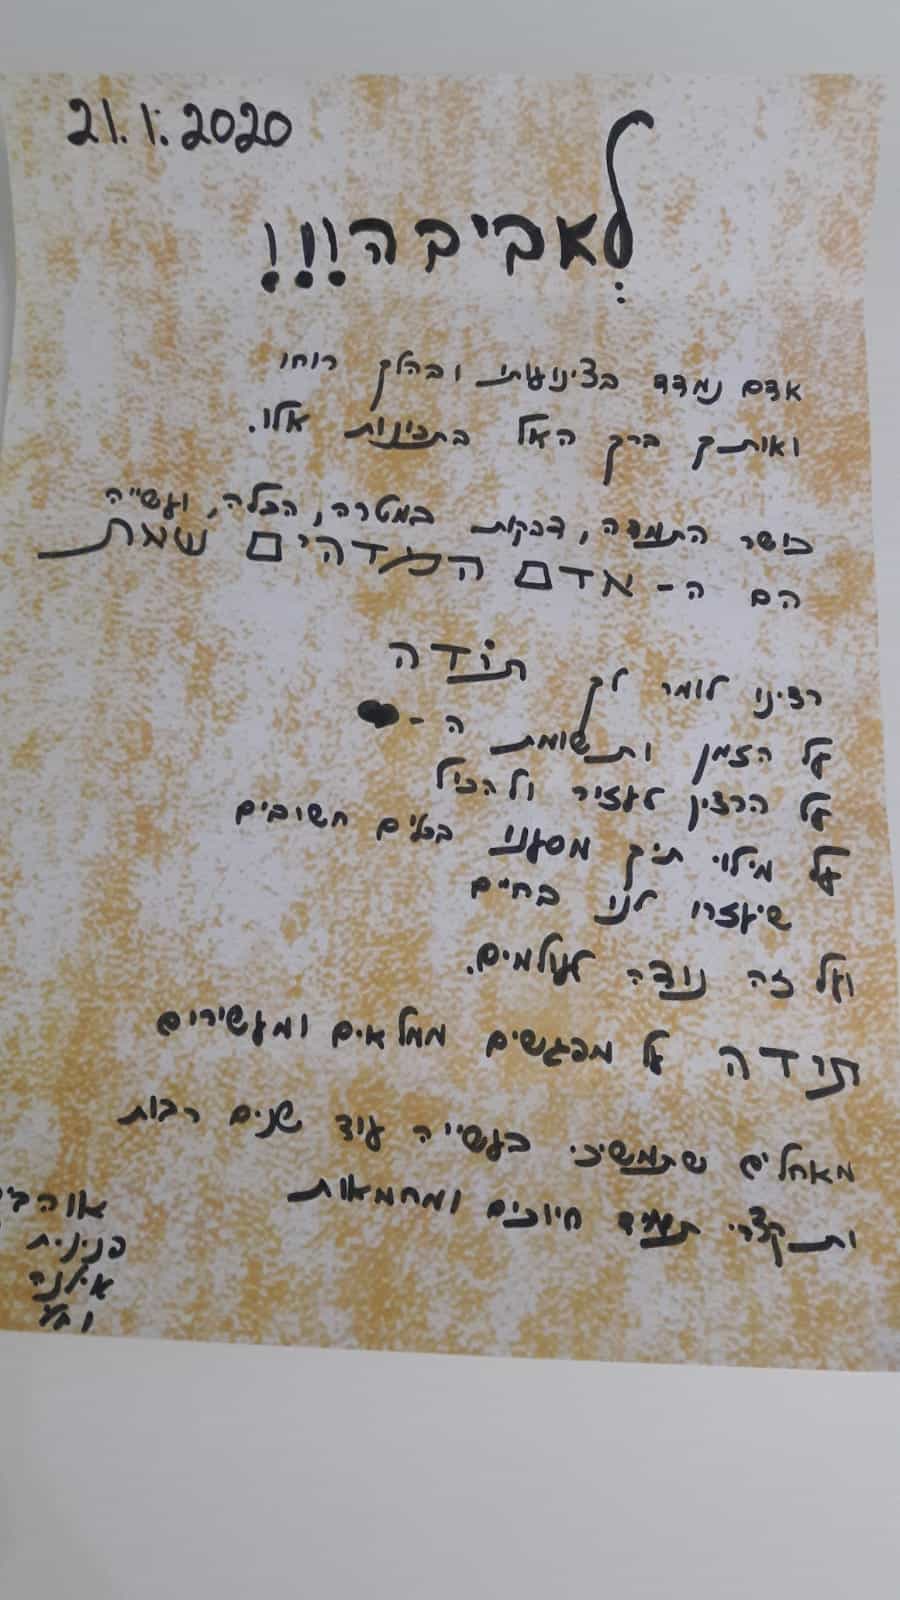 21.1.2020
לְאביבה!!!
אדם נמדד בצינועותו ובהלך רוחו
ואותך ברך האל בתכונות אלו.
כושר התמדה, דבקות במטרה, הכלה, ועשייה
הם ה- אדם המדהים שאת
רצינו לומר לך תודה
על הזמן ותשומת ה -
על הרצון לעזור ולהכיל
על מילוי תיק מסענו בכלים חשובים
שיעזרו לנו בחיים
ועל זה נודה לעולמים.
תודה על מפגשים ממלאים ומעשירים
מאחלים שתמשיכי בעשייה עוד שנים רבות
ותקצרי תמיד חיוכים ומחמאות
פנינית
אילנה